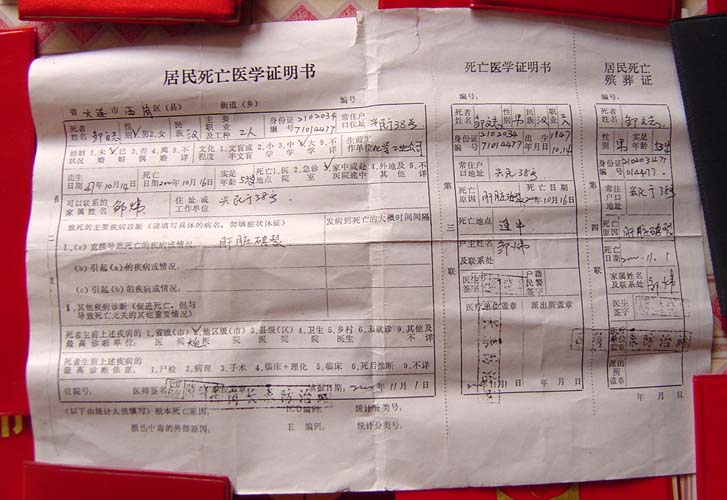 居民死亡医学证明书
省 大连 市 西岗 区(县) 街道(乡) 编号:
死者姓名 邹文志 性别 1.男2.女 民族 汉 主要职业及工种 工人 身份证编号 2102034 71014477 常住户口地址 兴民于38号
婚姻状况 1.未婚 2.已婚 3.丧偶 4.离婚 9.不详 文化程度 1.文盲或半文盲 2.小学 3.中学 4.大学 9.不详 生前工作单位
出生日期 47年10月14日 死亡日期 2000年10月16日 实足年龄 53岁 死亡地点 1.医院 2.急诊室 3.家中或赴医院途中 4.外地及其他 9.不详
可以联系的家属姓名 邹炜 住址或工作单位 兴民于38号
致死的主要疾病诊断(请填写具体的病名,勿填症状体征) 发病到死亡的大概时间间隔
I.(a)直接导致死亡的疾病或情况: 肝脏破裂
(b)引起(a)的疾病或情况:
(c)引起(b)的疾病或情况:
II.其他疾病诊断(促进死亡,但与导致死亡无关的其他重要情况)
死者生前上述疾病的最高诊断单位: 1.省级(市)医院 2.地区级(市)医院 3.县级(区)医院 4.卫生院 5.乡村医生 6.未就诊 9.其他及不详
死者生前上述疾病的最高诊断依据: 1.尸检 2.病理 3.手术 4.临床+理化 5.临床 6.死后推断 9.不详
住院号: 医师签名 单位盖章 填报日期: 2000年11月1日
(以下由统计人员填写)根本死亡原因: ICD编码: 统计分类号:
损伤中毒的外部原因: E 编码: 统计分类号:
第二联
死亡医学证明书
编号:
死者姓名 邹文志 性别 男 民族 汉 职业 工人
身份证编号 2102034 71014477 出生日期 1947 10.14
常住户口地址 兴民于38号
死亡原因 肝脏破裂 死亡日期 2000年10月16日
死亡地点 途中
户主姓名及联系处 邹炜
医生签字 户籍民警签字
医疗单位盖章 派出所盖章
2000年11月1日 年 月 日
第三联
居民死亡殡葬证
编号:
死者姓名 邹文志
性别 男 实足年龄 53岁
身份证编号 210203471014477
常住户口地址 兴民于38号
死亡原因 肝脏破裂
死亡日期 2000.11.1
家属姓名及联系处 邹炜
医生签字
医疗单位盖章
派出所盖章
年 月 日
第四联